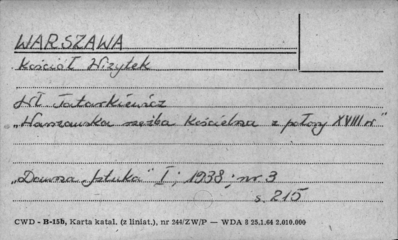 WARSZAWA
Kościół Wizytek
Wł Tatarkiewicz
"Warszawska rzeźba kościelna z połowy XVIII w"
"Dawna Sztuka" I, 1938, nr. 3
s. 215
CWD - B-15b, Karta katal. (z liniat.), nr 244/ZW/P — WDA 8 25.1.64 2.010.000